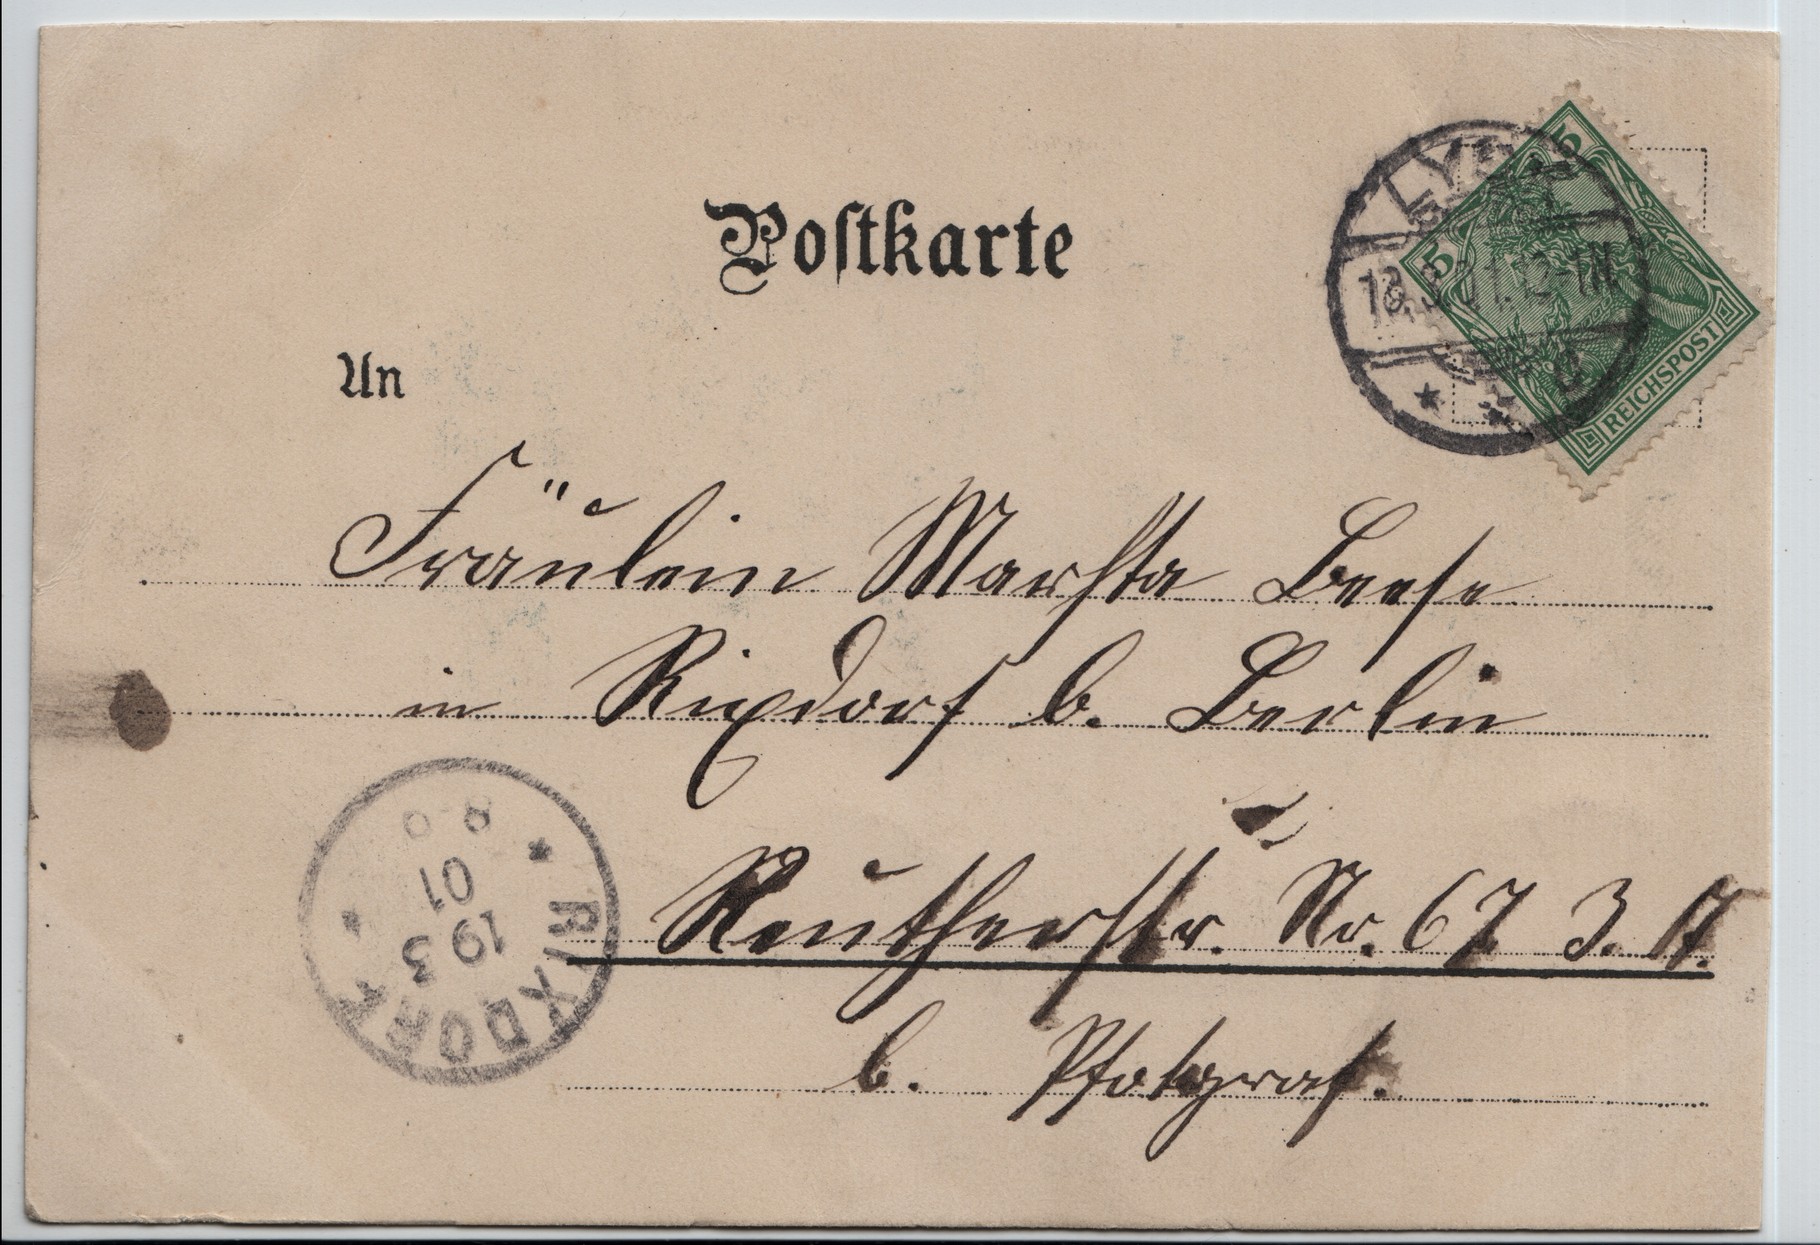 Postkarte
5
5
REICHSPOST
LYCK
18.3.01.12-1N.
d
An
Fräulein Martha Beese
in Rixdorf b. Berlin
Reutherstr. Nr. 67 3.
b. Photgraf.
RIXDORF
19 3
01